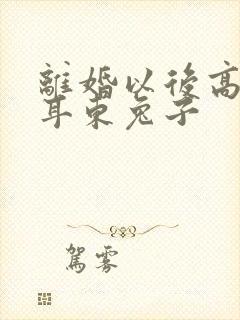 離婚以後高
耳東兔子
駕霧